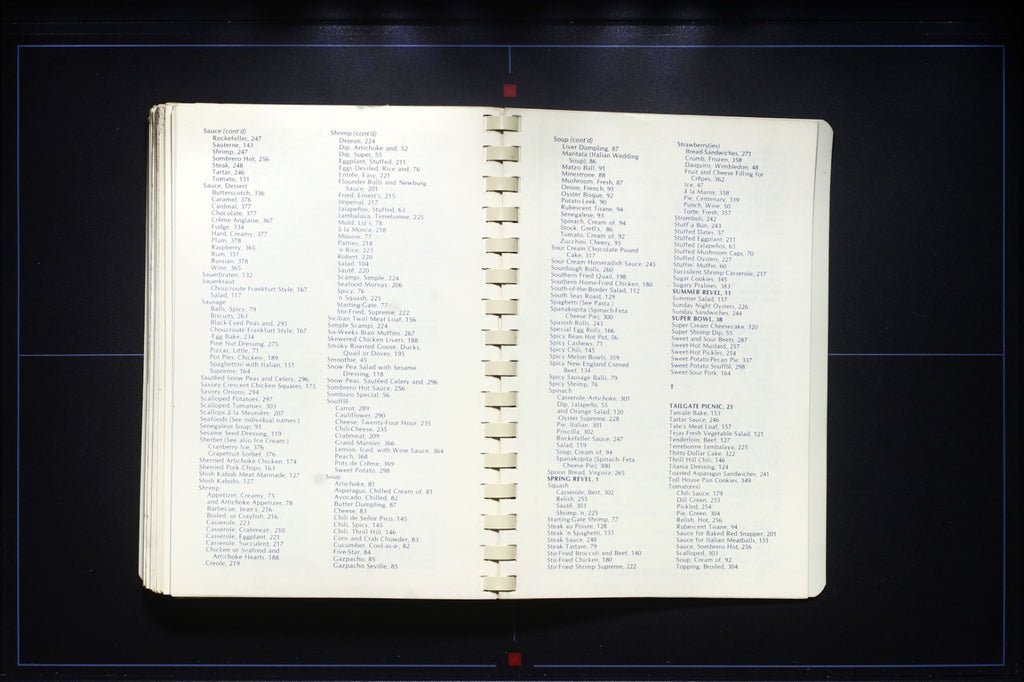 Sauce (cont'd)
Rockefeller, 247
Sauterne, 143
Shrimp, 247
Sombrero Hot, 256
Steak, 248
Tartar, 246
Tomato, 151
Sauce, Dessert
Butterscotch, 336
Caramel, 376
Cardinal, 377
Chocolate, 377
Crème Anglaise, 367
Fudge, 334
Hard, Creamy, 377
Plum, 378
Raspberry, 365
Rum, 351
Russian, 378
Wine, 365
Sauerbraten, 132
Sauerkraut
Choucroute Frankfurt Style, 167
Salad, 117
Sausage
Balls, Spicy, 79
Biscuits, 263
Black-Eyed Peas and, 295
Choucroute Frankfurt Style, 167
-Egg Bake, 234
Pine Nut Dressing, 275
Pizzas, Little, 71
Pot Pies, Chicken-, 189
Spaghettini with Italian, 151
Supreme, 164
Sautéed Snow Peas and Celery, 296
Savory Crescent Chicken Squares, 175
Savory Onions, 294
Scalloped Potatoes, 297
Scalloped Tomatoes, 303
Scallops à la Meunière, 207
Seafoods (See individual names.)
Senegalese Soup, 93
Sesame Seed Dressing, 119
Sherbet (See also Ice Cream.)
Cranberry Ice, 376
Grapefruit Sorbet, 376
Sherried Artichoke Chicken, 174
Sherried Pork Chops, 163
Shish Kabob Meat Marinade, 127
Shish Kabobs, 127
Shrimp
Appetizer, Creamy, 75
and Artichoke Appetizer, 78
Barbecue, Jean's, 216
Boiled, or Crayfish, 216
Casserole, 223
Casserole, Crabmeat-, 210
Casserole, Eggplant, 221
Casserole, Succulent, 217
Chicken or Seafood and
Artichoke Hearts, 188
Creole, 219
Shrimp (cont'd)
Dejean, 224
Dip, Artichoke and, 52
Dip, Super, 55
Eggplant, Stuffed, 211
Eggs Deviled, Rice and, 76
Entrée, Easy, 221
Flounder Rolls and Newburg
Sauce, 201
Fried, Ernest's, 215
Imperial, 217
Jalapeños, Stuffed, 63
Jambalaya, Terrebonne, 225
Mold, Liz's, 78
à la Mosca, 218
Mousse, 77
Patties, 218
'n Rice, 223
Robert, 220
Salad, 104
Sauté, 220
Scampi, Simple, 224
Seafood Mornay, 206
Spicy, 76
'n Squash, 225
Starting-Gate, 77
Stir-Fried, Supreme, 222
Sicilian Twirl Meat Loaf, 156
Simple Scampi, 224
Six-Weeks Bran Muffins, 267
Skewered Chicken Livers, 188
Smoky Roasted Goose, Ducks,
Quail or Doves, 195
Smoothie, 45
Snow Pea Salad with Sesame
Dressing, 118
Snow Peas, Sautéed Celery and, 296
Sombrero Hot Sauce, 256
Somburo Special, 56
Soufflé
Carrot, 289
Cauliflower, 290
Cheese, Twenty-Four Hour, 235
Chili-Cheese, 235
Crabmeat, 209
Grand Marnier, 366
Lemon, Iced, with Wine Sauce, 364
Peach, 368
Pots de Crème, 369
Sweet Potato, 298
Soup
Artichoke, 81
Asparagus, Chilled Cream of, 81
Avocado, Chilled, 82
Butter Dumpling, 87
Cheese, 83
Chili de Señor Pico, 145
Chili, Spicy, 145
Chili, Thrill Hill, 146
Corn and Crab Chowder, 83
Cucumber, Cool-as-a-, 82
Five-Star, 84
Gazpacho, 85
Gazpacho Seville, 85
Soup (cont'd)
Liver Dumpling, 87
Maritata (Italian Wedding
Soup), 86
Matzo Ball, 91
Minestrone, 88
Mushroom, Fresh, 87
Onion, French, 91
Oyster Bisque, 92
Potato-Leek, 90
Rubescent Tisane, 94
Senegalese, 93
Spinach, Cream of, 94
Stock, Gretl's, 86
Tomato, Cream of, 92
Zucchini, Cheesy, 95
Sour Cream Chocolate Pound
Cake, 317
Sour Cream Horseradish Sauce, 245
Sourdough Rolls, 260
Southern Fried Quail, 198
Southern Home-Fried Chicken, 180
South-of-the-Border Salad, 112
South Seas Roast, 129
Spaghetti (See Pasta.)
Spanakopita (Spinach-Feta
Cheese Pie), 300
Spanish Rolls, 243
Special Egg Rolls, 166
Spicy Bean Hot Pot, 56
Spicy Cashews, 71
Spicy Chili, 145
Spicy Melon Bowls, 359
Spicy New England Corned
Beef, 134
Spicy Sausage Balls, 79
Spicy Shrimp, 76
Spinach
Casserole, Artichoke, 301
Dip, Jalapeño, 55
and Orange Salad, 120
-Oyster Supreme, 228
Pie, Italian, 301
Priscilla, 302
Rockefeller Sauce, 247
Salad, 119
Soup, Cream of, 94
Spanakopita (Spinach-Feta
Cheese Pie), 300
Spoon Bread, Virginia, 265
SPRING REVEL, 1
Squash
Casserole, Best, 302
Relish, 255
Sauté, 303
Shrimp 'n, 225
Starting-Gate Shrimp, 77
Steak au Poivre, 128
Steak 'n Spaghetti, 133
Steak Sauce, 248
Steak Tartare, 79
Stir-Fried Broccoli and Beef, 140
Stir-Fried Chicken, 180
Stir-Fried Shrimp Supreme, 222
Strawberry(ies)
Bread-Sandwiches, 271
Crumb, Frozen, 358
Daiquiris, Wimbledon, 48
and Cheese Filling for
Crêpes, 362
Ice, 47
à la Marny, 358
Pie, Centenary, 339
Punch, Wine, 50
Torte, Fresh, 357
Stromboli, 242
Stuff a Bun, 243
Stuffed Dates, 57
Stuffed Eggplant, 211
Stuffed Jalapeños, 63
Stuffed Mushroom Caps, 70
Stuffed Oysters, 227
Stuffin' Muffin, 60
Succulent Shrimp Casserole, 217
Sugar Cookies, 345
Sugary Pralines, 383
SUMMER REVEL, 11
Summer Salad, 117
Sunday Night Oysters, 226
Sunday Sandwiches, 244
SUPER BOWL, 38
Super Cream Cheesecake, 320
Super Shrimp Dip, 55
Sweet and Sour Beets, 287
Sweet-Hot Mustard, 257
Sweet-Hot Pickles, 254
Sweet Potato-Pecan Pie, 337
Sweet Potato Soufflé, 298
Sweet-Sour Pork, 164
T
TAILGATE PICNIC, 23
Tamale Bake, 153
Tartar Sauce, 246
Tate's Meat Loaf, 157
Tejas Fresh Vegetable Salad, 121
Tenderloin, Beef, 127
Terrebonne Jambalaya, 225
Thirty-Dollar Cake, 322
Thrill Hill Chili, 146
Titania Dressing, 124
Toasted Asparagus Sandwiches, 241
Toll House Pan Cookies, 349
Tomato(es)
Chili Sauce, 179
Dill Green, 253
Pickled, 254
Pie, Green, 304
Relish, Hot, 256
Rubescent Tisane, 94
Sauce for Baked Red Snapper, 201
Sauce for Italian Meatballs, 151
Sauce, Sombrero Hot, 256
Scalloped, 303
Soup, Cream of, 92
Topping, Broiled, 304